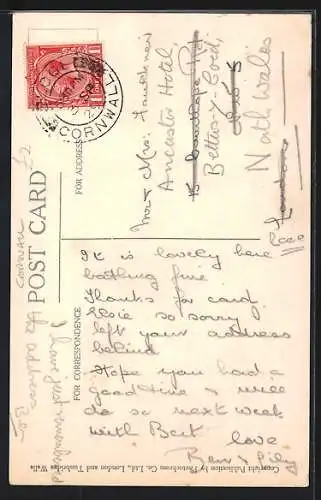 CORNWALL
POST CARD
FOR ADDRESS
Mr & Mrs. Faulkner
Ancaster Hotel,
Bettws-y-Coed,
North Wales
FOR CORRESPONDENCE
It is lovely here
bathing fine
Thanks for card.
Elsie so sorry
left your address
behind
Hope you had a
good time & will
do so next week
with Bert
love
I have just remembered
the address
CORNWALL
£2
Copyright Publication by Photochrom Co., Ltd., London and Tunbridge Wells